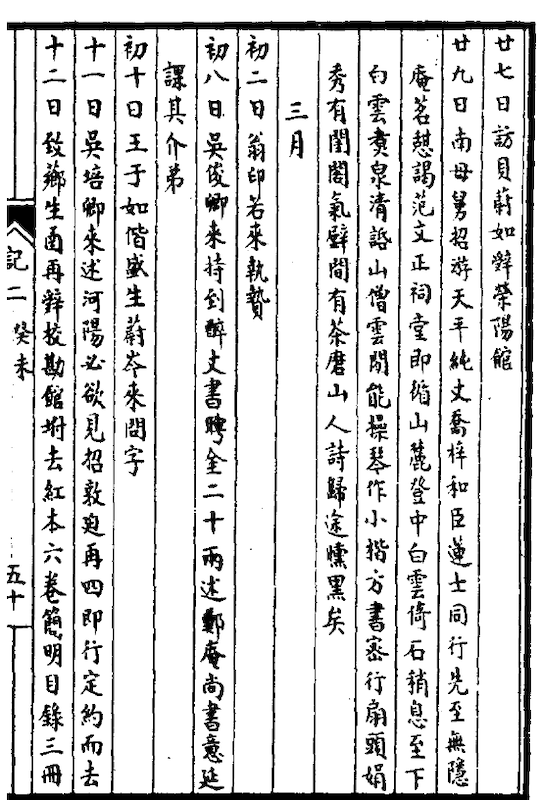 廿七日訪貝蔚如辭榮陽館
廿九日南母舅招游天平純丈喬梓和臣蓮士同行先至無隱
庵茗憩謁范文正祠堂即循山麓登中白雲倚石稍息至下
白雲煑泉清話山僧雲閒能操琴作小楷方書密行扇頭娟
秀有閨閣氣壁間有茶磨山人詩歸途曛黑矣
三月
初二日翁印若來執贄
初八日吳俊卿來持到醉丈書聘金二十兩述鄭庵尚書意延
課其介弟
初十日王于如偕盛生蔚岑來問字
十一日吳培卿來述河陽必欲見招敦迫再四即行定約而去
十二日致薌生函再辭校勘館坿去紅本六卷簡明目錄三冊
記二 癸未
五十